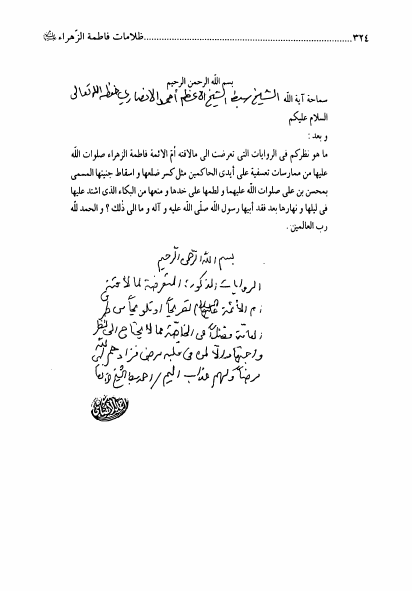 ٣٢٤ ........................................ ظلامات فاطمة الزهراء
بسم الله الرحمن الرحيم
سماحة آية الله الشيخ سبط الشيخ الاعظم أحمد الانصاري حفظه الله تعالى
السلام عليكم
و بعد :
ما هو نظركم فى الروايات التى تعرضت الى مالاقته أمّ الائمة فاطمة الزهراء صلوات الله
عليها من ممارسات تعسفية على أيدى الحاكمين مثل كسر ضلعها و اسقاط جنينها المسمى
بمحسن بن على صلوات الله عليهما و لطمها على خدها و منعها من البكاء الذى اشتد عليها
فى ليلها و نهارها بعد فقد أبيها رسول الله صلّى الله عليه و آله و ما الى ذلك ؟ و الحمد للّه
رب العالمين .
بسم الله الرحمن الرحيم
الروايات المذكورة المتعرضة لما لاقته
ام الأئمة عليها السلام تصريحاً او تلويحاً من طرق
العامة فضلاً عن الخاصة مما لا يحتاج الى نظر
الا من فى قلبه مرض فزادهم الله
مرضاً ولهم عذاب اليم احمد سبط الشيخ